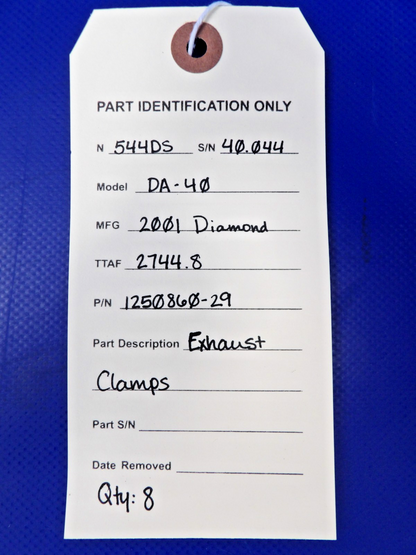 PART IDENTIFICATION ONLY
N 544DS S/N 40.044
Model DA-40
MFG 2001 Diamond
TTAF 2744.8
P/N 1250860-29
Part Description Exhaust
Clamps
Part S/N
Date Removed
Qty: 8